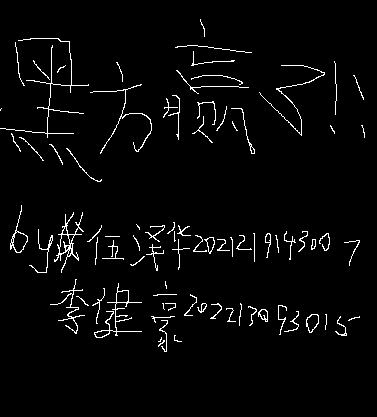 黑方赢了!!
by 伍泽华2021219143007
李健豪202213093015